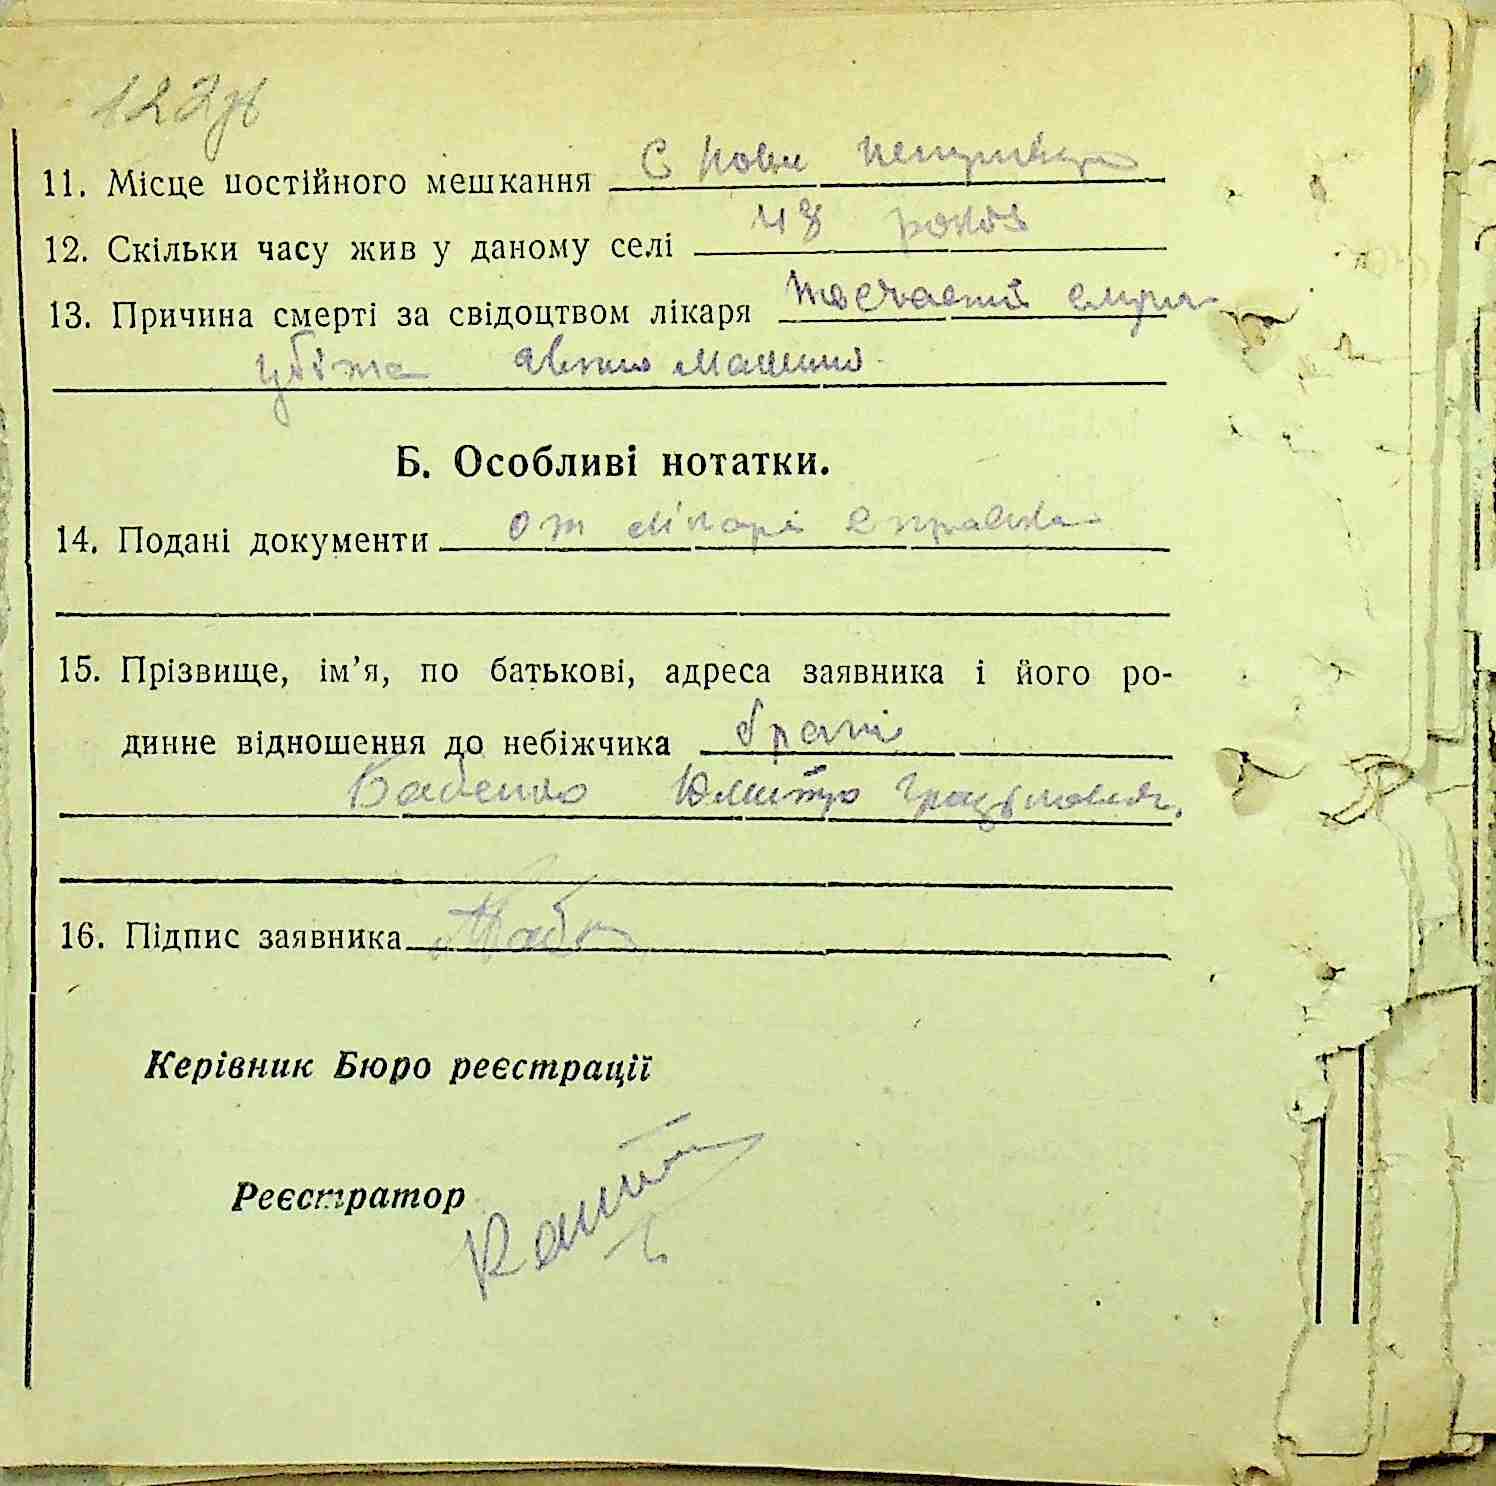 122зв
11. Місце постійного мешкання с Нови
12. Скільки часу жив у даному селі 48 років
13. Причина смерті за свідоцтвом лікаря
убіта Явто машино
Б. Особливі нотатки.
14. Подані документи от лікарі справка
15. Прізвище, ім’я, по батькові, адреса заявника і його ро-
динне відношення до небіжчика браті
Бабенко
16. Підпис заявника
Керівник Бюро реєстрації
Реєстратор